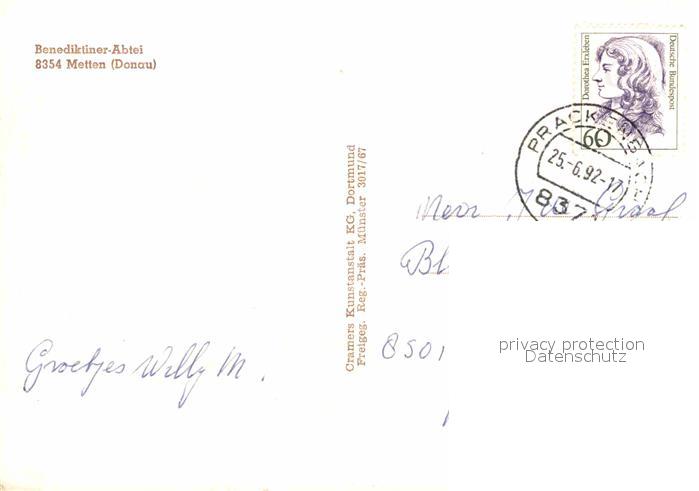 Benediktiner-Abtei
8354 Metten (Donau)
Dorothea Erxleben
Deutsche Bundespost
60
25.-6.92-17
837
Cramers Kunstanstalt KG, Dortmund
Freigeg. Reg.-Präs. Münster 3017/67
Bl
8501
privacy protection
Datenschutz
Groetjes Willy M.